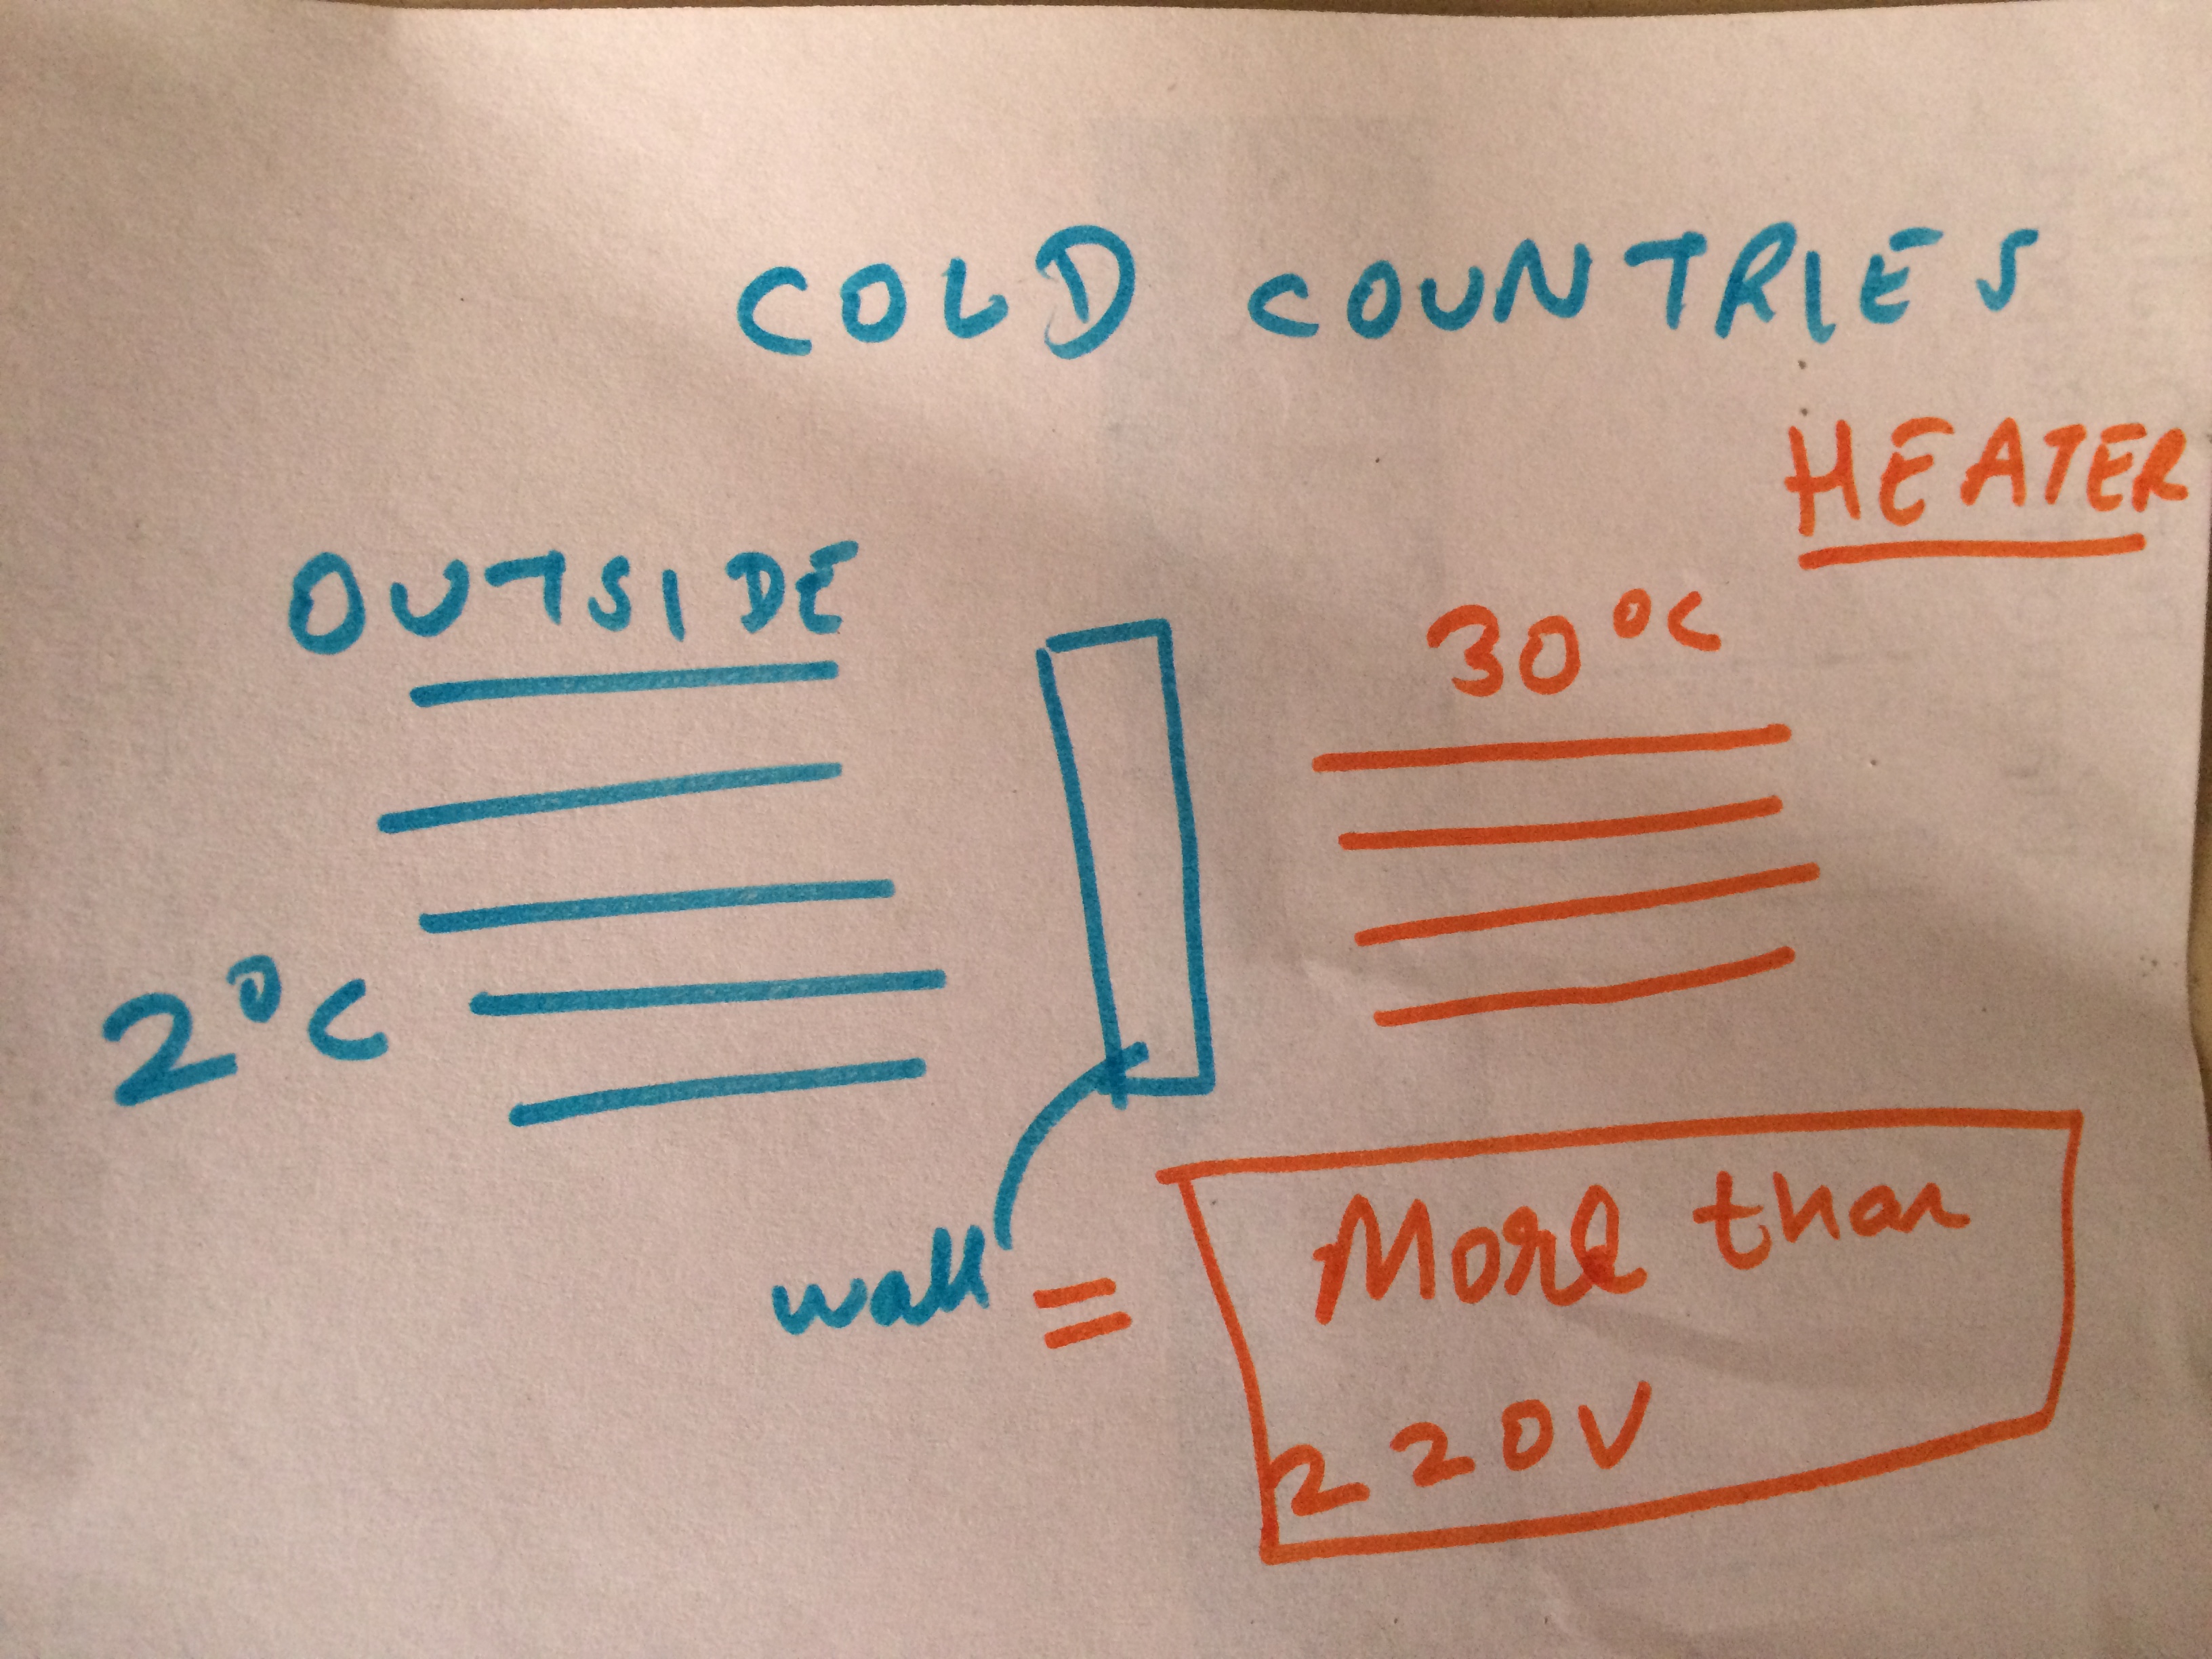 COLD COUNTRIES
HEATER
OUTSIDE
30°C
2°C
wall =
More than
220V